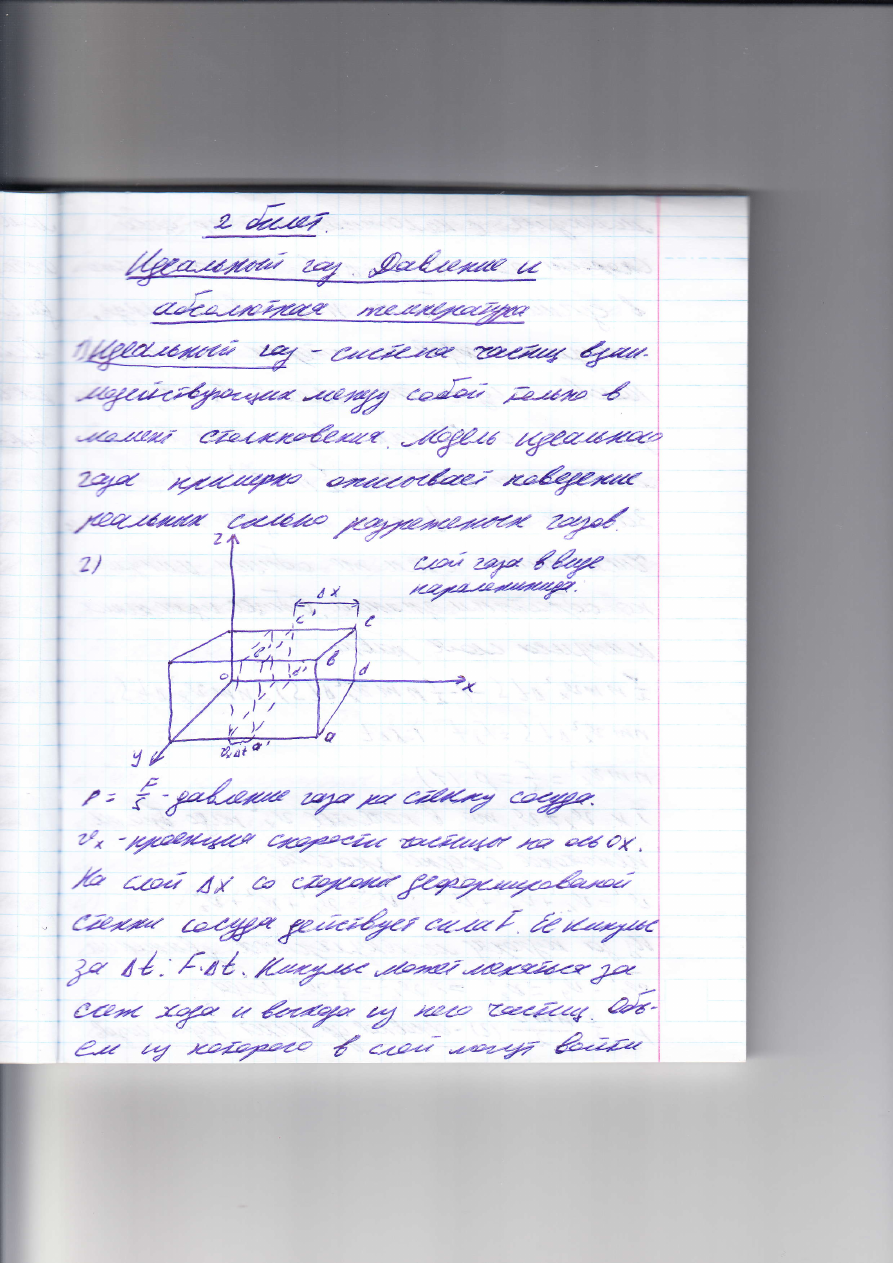 2 билет.
Идеальный газ. Давление и
абсолютная температура
1) Идеальный газ - система частиц взаи-
модействующих между собой только в
момент столкновения. Модель идеального
газа примерно описывает поведение
реальных сильно разреженых газов.
2)
слой газа в виде
паралепипида.
z
Δx
c' c
e' b
o d' d
x
a
y vₓΔt a'
p = F/S - давление газа на стенку сосуда.
vₓ - проекция скорости частицы на ось Ox.
На слой Δx со стороны деформированой
стенки сосуда действует сила F. Её импульс
за Δt: F·Δt. Импульс может меняться за
счет хода и выхода из него частиц. Объ-
ем из которого в слой могут войти